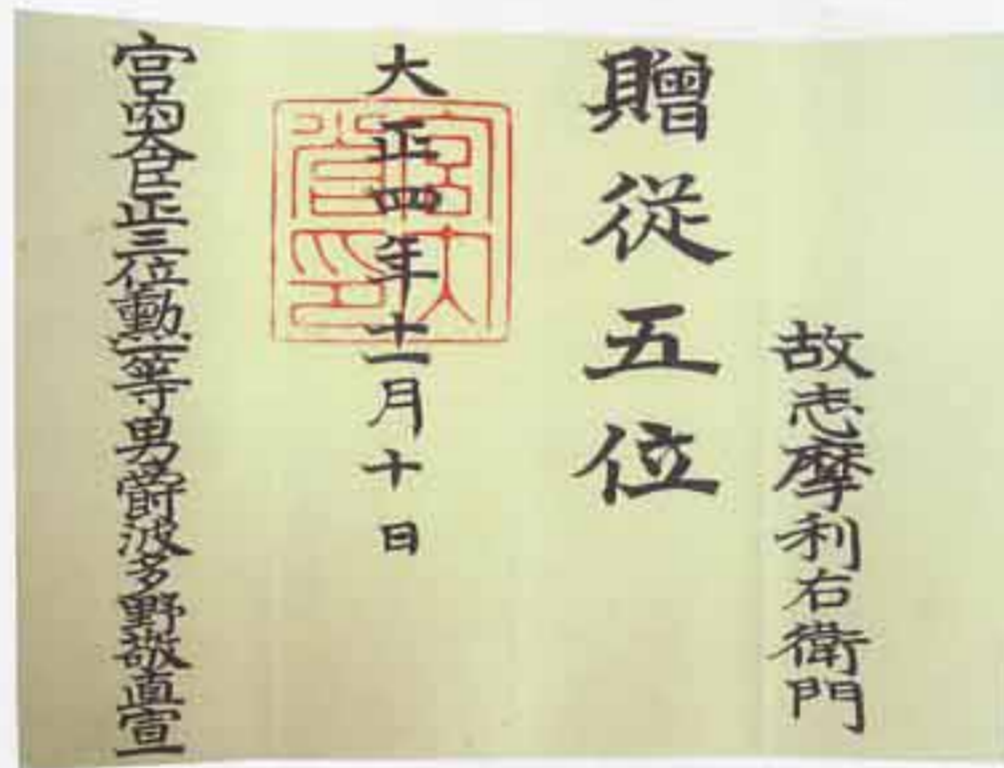 故志摩利右衛門
贈従五位
大正四年十一月十日
宮内大臣正三位勲一等男爵波多野敬直宣